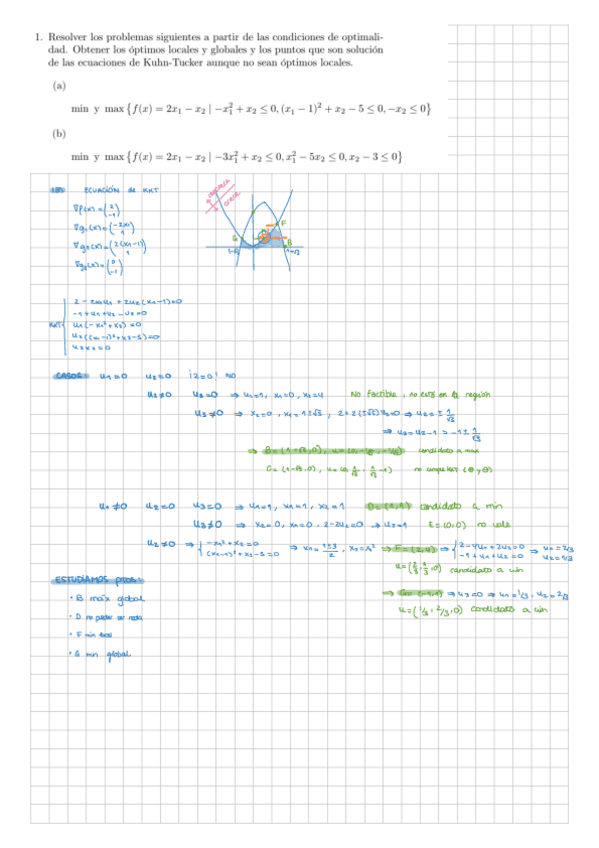 1. Resolver los problemas siguientes a partir de las condiciones de optimali-
dad. Obtener los óptimos locales y globales y los puntos que son solución
de las ecuaciones de Kuhn-Tucker aunque no sean óptimos locales.
(a)
min y max {f(x) = 2x₁ − x₂ | −x₁² + x₂ ≤ 0, (x₁ − 1)² + x₂ − 5 ≤ 0, −x₂ ≤ 0}
(b)
min y max {f(x) = 2x₁ − x₂ | −3x₁² + x₂ ≤ 0, x₁² − 5x₂ ≤ 0, x₂ − 3 ≤ 0}
ECUACIÓN de KKT
∇f(x) = (2 −1)
∇g₁(x) = (−2x₁ 1)
∇g₂(x) = (2(x₁−1) 1)
∇g₃(x) = (0 −1)
decrece
crece
G
F
B
1−√5
1+√5
KKT
2 − 2x₁u₁ + 2u₂(x₁−1) = 0
−1 + u₁ + u₂ − u₃ = 0
u₁(−x₁² + x₂) = 0
u₂((x₁−1)² + x₂ − 5) = 0
u₃x₂ = 0
CASOS u₁=0 u₂=0 ¡2=0! NO
u₂≠0 u₃=0 ⇒ u₂=1, x₁=0, x₂=4 No factible, no está en la región
u₃≠0 ⇒ x₂=0, x₁=1±√5, 2+2(±√5)u₂=0 ⇒ u₂=±1/√5
⇒ u₃=u₂−1 = −1±1/√5
⇒ B=(1+√5,0), candidato a max
G=(1−√5,0), no cumple KKT
u₁≠0 u₂=0 u₃=0 ⇒ u₁=1, x₁=1, x₂=1 D=(1,1) candidato a min
u₃≠0 ⇒ x₂=0, x₁=0, 2−2u₂=0 → u₂=1 E=(0,0) no vale
u₂≠0 ⇒ { −x₁²+x₂=0 ⇒ x₁=(1±3)/2, x₂=x₁² ⇒ F=(2,4) ⇒ { 2−4u₁+2u₂=0 ⇒ u₁=2/3
(x₁−1)²+x₂−5=0 −1+u₁+u₂=0 u₂=1/3
u=(2/3,1/3,0) candidato a min
⇒ G=(−1,1) ⇒ u₃=0 ⇒ u₁=1/3, u₂=2/3
u=(1/3,2/3,0) candidato a min
ESTUDIAMOS ptos:
• B máx global
• D no puede ser nada
• F min local
• G min global